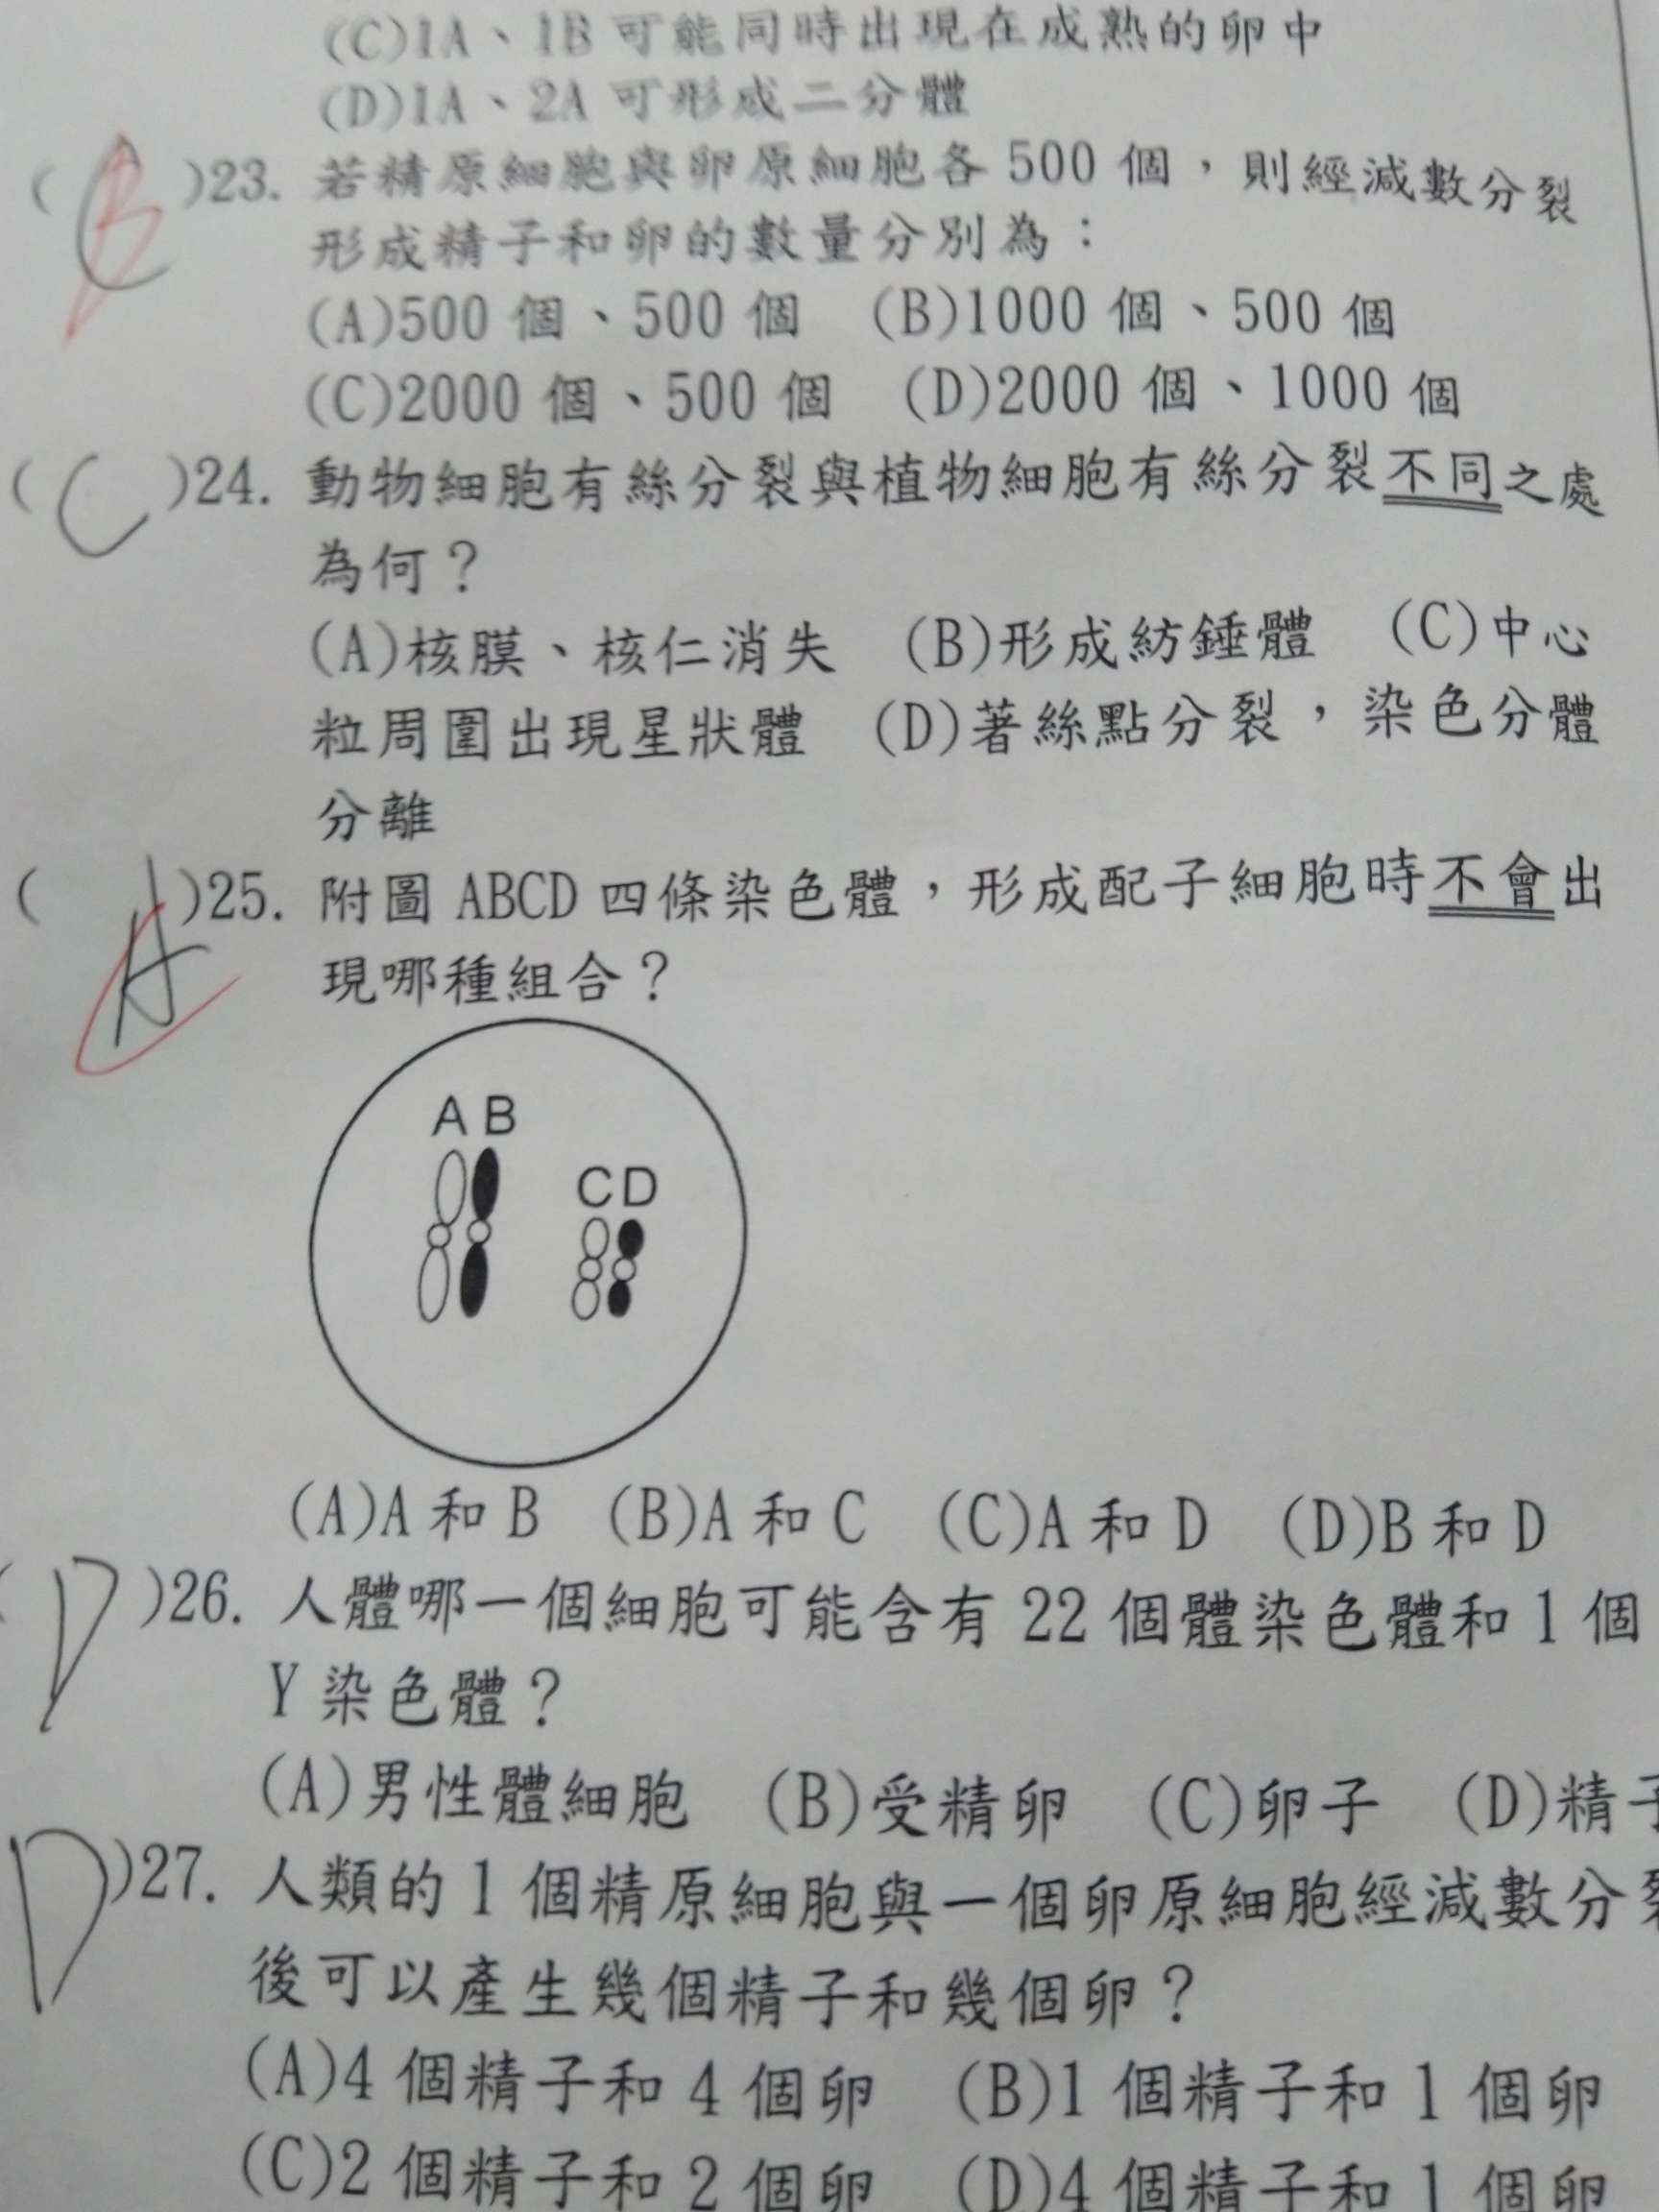 (C)1A、1B 可能同時出現在成熟的卵中
(D)1A、2A 可形成二分體
( C )23. 若精原細胞與卵原細胞各 500 個，則經減數分裂
形成精子和卵的數量分別為：
(A)500 個、500 個 (B)1000 個、500 個
(C)2000 個、500 個 (D)2000 個、1000 個
( C )24. 動物細胞有絲分裂與植物細胞有絲分裂不同之處
為何？
(A)核膜、核仁消失 (B)形成紡錘體 (C)中心
粒周圍出現星狀體 (D)著絲點分裂，染色分體
分離
( A )25. 附圖 ABCD 四條染色體，形成配子細胞時不會出
現哪種組合？
A B
C D
(A)A 和 B (B)A 和 C (C)A 和 D (D)B 和 D
( D )26. 人體哪一個細胞可能含有 22 個體染色體和 1 個
Y 染色體？
(A)男性體細胞 (B)受精卵 (C)卵子 (D)精子
D )27. 人類的 1 個精原細胞與一個卵原細胞經減數分裂
後可以產生幾個精子和幾個卵？
(A)4 個精子和 4 個卵 (B)1 個精子和 1 個卵
(C)2 個精子和 2 個卵 (D)4 個精子和 1 個卵